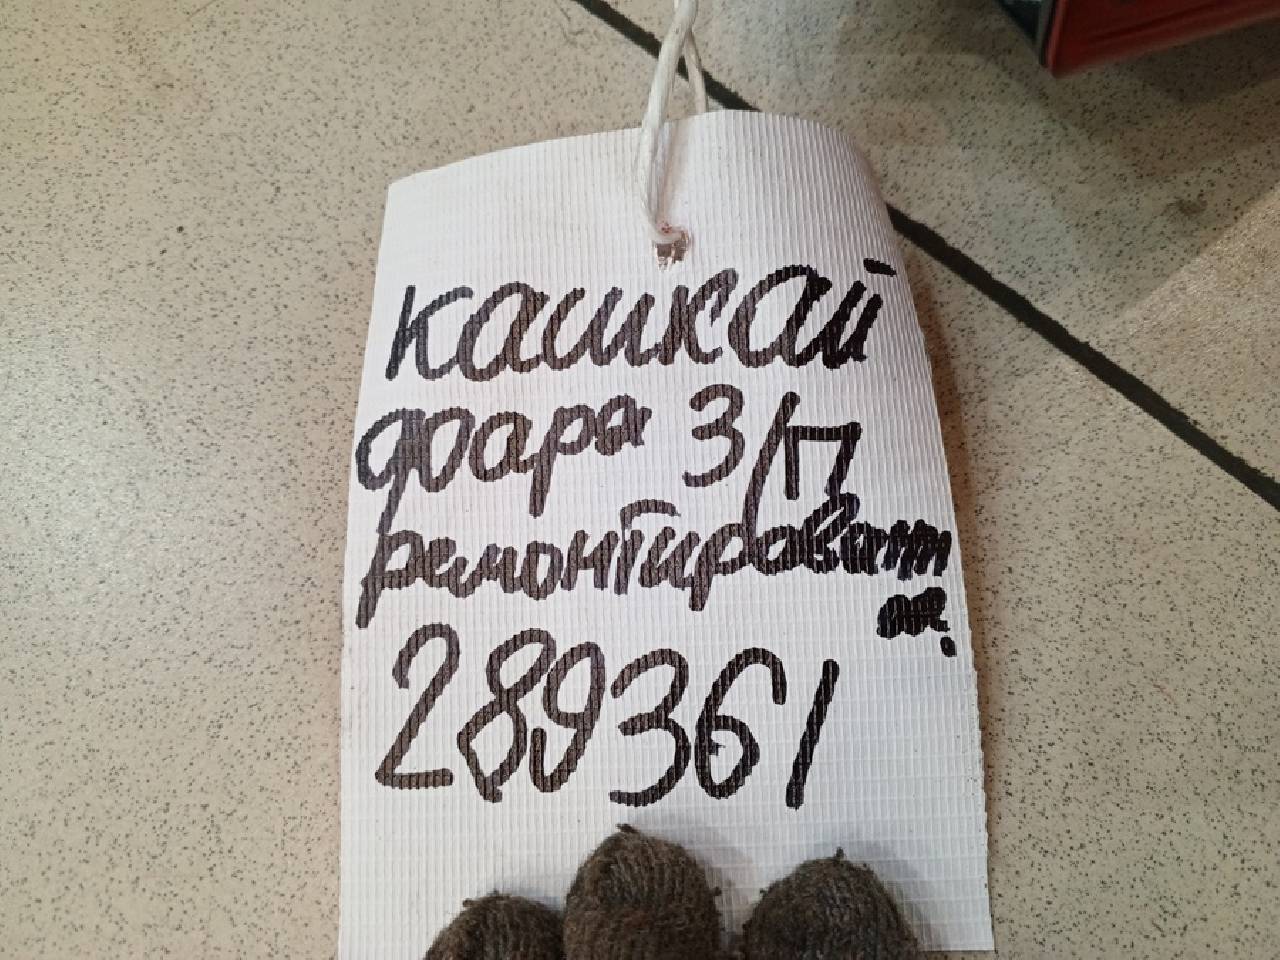 кашкай
фара з/п
ремонтироват
289361